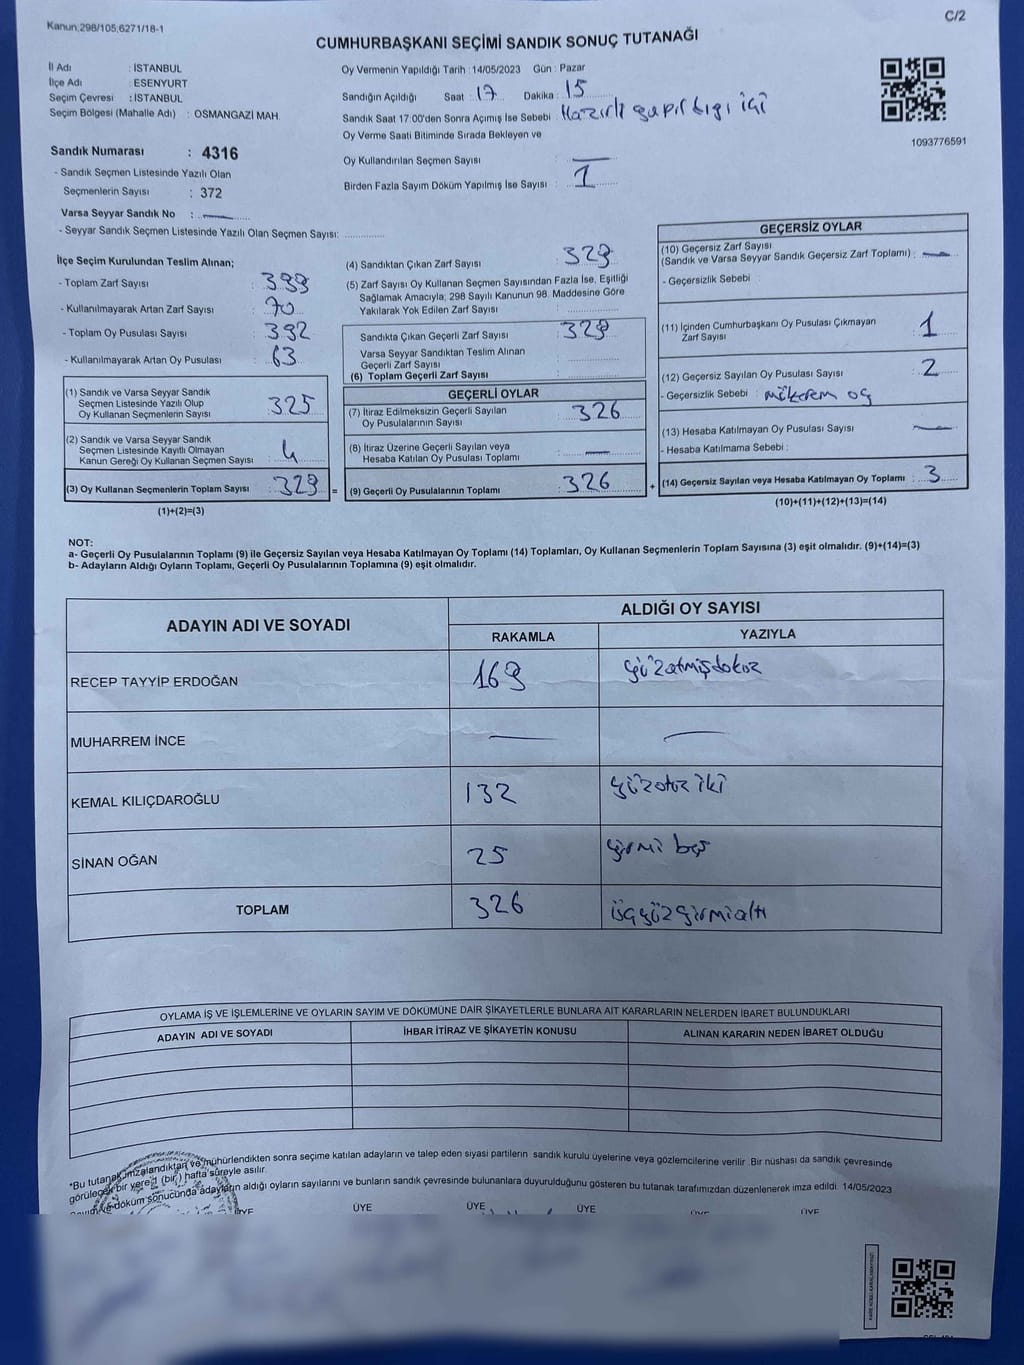 Kanun;298/105,6271/18-1
C/2
CUMHURBAŞKANI SEÇİMİ SANDIK SONUÇ TUTANAĞI
İl Adı : İSTANBUL
İlçe Adı : ESENYURT
Seçim Çevresi : İSTANBUL
Seçim Bölgesi (Mahalle Adı) : OSMANGAZİ MAH.
Sandık Numarası : 4316
- Sandık Seçmen Listesinde Yazılı Olan
Seçmenlerin Sayısı : 372
Varsa Seyyar Sandık No : —
- Seyyar Sandık Seçmen Listesinde Yazılı Olan Seçmen Sayısı: ............
Oy Vermenin Yapıldığı Tarih : 14/05/2023 Gün : Pazar
Sandığın Açıldığı Saat : 17 Dakika : 15
Sandık Saat 17:00'den Sonra Açımış İse Sebebi : Hazırlık yapıldığı için
Oy Verme Saati Bitiminde Sırada Bekleyen ve
Oy Kullandırılan Seçmen Sayısı : —
Birden Fazla Sayım Döküm Yapılmış İse Sayısı : 1
1093776591
İlçe Seçim Kurulundan Teslim Alınan;
- Toplam Zarf Sayısı : 399
- Kullanılmayarak Artan Zarf Sayısı : 70
- Toplam Oy Pusulası Sayısı : 392
- Kullanılmayarak Artan Oy Pusulası : 63
(1) Sandık ve Varsa Seyyar Sandık
Seçmen Listesinde Yazılı Olup
Oy Kullanan Seçmenlerin Sayısı : 325
(2) Sandık ve Varsa Seyyar Sandık
Seçmen Listesinde Kayıtlı Olmayan
Kanun Gereği Oy Kullanan Seçmen Sayısı : 4
(3) Oy Kullanan Seçmenlerin Toplam Sayısı : 329
(1)+(2)=(3)
(4) Sandıktan Çıkan Zarf Sayısı : 329
(5) Zarf Sayısı Oy Kullanan Seçmen Sayısından Fazla İse, Eşitliği
Sağlamak Amacıyla; 298 Sayılı Kanunun 98. Maddesine Göre
Yakılarak Yok Edilen Zarf Sayısı :
Sandıkta Çıkan Geçerli Zarf Sayısı : 329
Varsa Seyyar Sandıktan Teslim Alınan
Geçerli Zarf Sayısı
(6) Toplam Geçerli Zarf Sayısı :
GEÇERLİ OYLAR
(7) İtiraz Edilmeksizin Geçerli Sayılan
Oy Pusulalarının Sayısı : 326
(8) İtiraz Üzerine Geçerli Sayılan veya
Hesaba Katılan Oy Pusulası Toplamı : —
(9) Geçerli Oy Pusulalarının Toplamı : 326
GEÇERSİZ OYLAR
(10) Geçersiz Zarf Sayısı
(Sandık ve Varsa Seyyar Sandık Geçersiz Zarf Toplamı) : —
- Geçersizlik Sebebi :
(11) İçinden Cumhurbaşkanı Oy Pusulası Çıkmayan
Zarf Sayısı : 1
(12) Geçersiz Sayılan Oy Pusulası Sayısı : 2
- Geçersizlik Sebebi : mükerrem oy
(13) Hesaba Katılmayan Oy Pusulası Sayısı : —
- Hesaba Katılmama Sebebi :
(14) Geçersiz Sayılan veya Hesaba Katılmayan Oy Toplamı : 3
(10)+(11)+(12)+(13)=(14)
NOT:
a- Geçerli Oy Pusulalarının Toplamı (9) ile Geçersiz Sayılan veya Hesaba Katılmayan Oy Toplamı (14) Toplamları, Oy Kullanan Seçmenlerin Toplam Sayısına (3) eşit olmalıdır. (9)+(14)=(3)
b- Adayların Aldığı Oyların Toplamı, Geçerli Oy Pusulalarının Toplamına (9) eşit olmalıdır.
ADAYIN ADI VE SOYADI
ALDIĞI OY SAYISI
RAKAMLA YAZIYLA
RECEP TAYYİP ERDOĞAN 169 yüzatmışdokuz
MUHARREM İNCE — —
KEMAL KILIÇDAROĞLU 132 yüzotuz iki
SİNAN OĞAN 25 yirmi beş
TOPLAM 326 üçyüzyirmialtı
OYLAMA İŞ VE İŞLEMLERİNE VE OYLARIN SAYIM VE DÖKÜMÜNE DAİR ŞİKAYETLERLE BUNLARA AİT KARARLARIN NELERDEN İBARET BULUNDUKLARI
ADAYIN ADI VE SOYADI İHBAR İTİRAZ VE ŞİKAYETİN KONUSU ALINAN KARARIN NEDEN İBARET OLDUĞU
*Bu tutanak imzalandıktan ve mühürlendikten sonra seçime katılan adayların ve talep eden siyasi partilerin sandık kurulu üyelerine veya gözlemcilerine verilir .Bir nüshası da sandık çevresinde
görülecek bir yere 1 (bir) hafta süreyle asılır.
ve döküm sonucunda adayların aldığı oyların sayılarını ve bunların sandık çevresinde bulunanlara duyurulduğunu gösteren bu tutanak tarafımızdan düzenlenerek imza edildi. 14/05/2023
ÜYE ÜYE ÜYE ÜYE ÜYE ÜYE